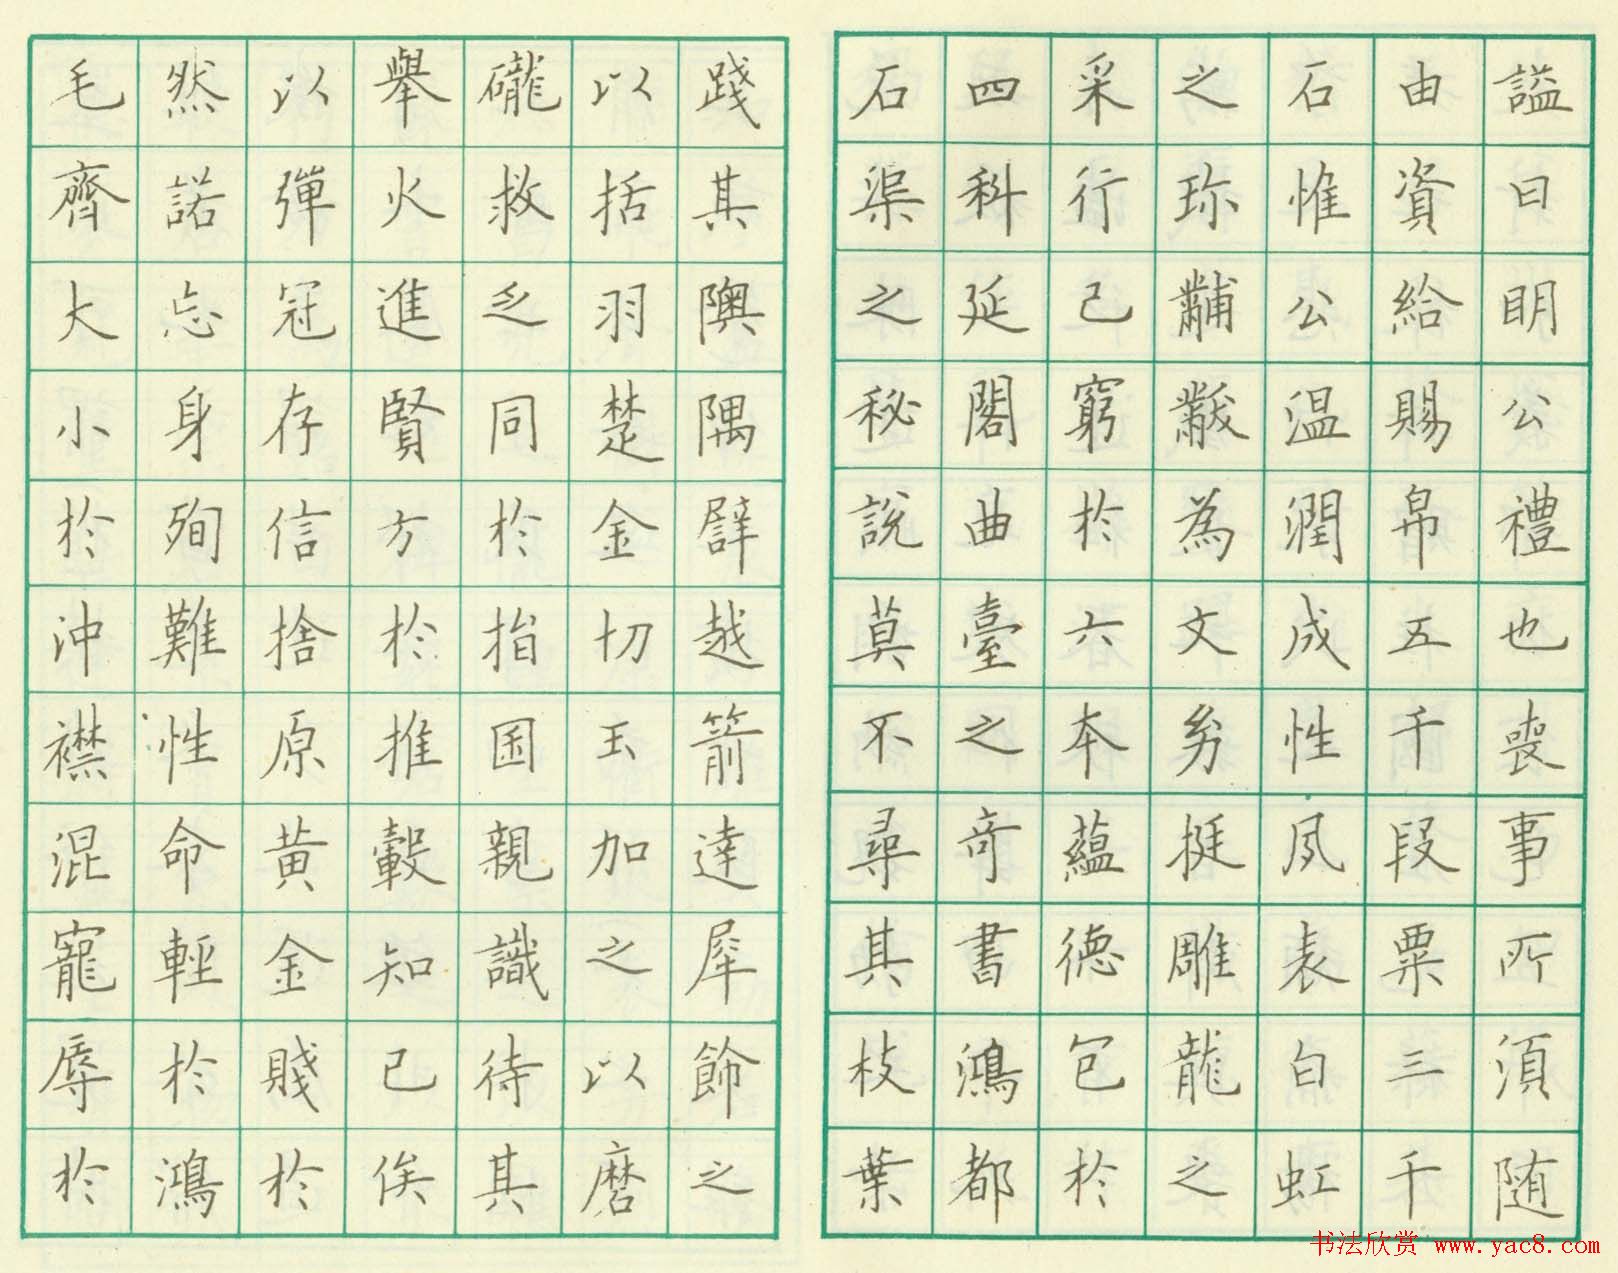 謚曰明公禮也喪事所須随
由資給賜帛五千段粟三千
石惟公温潤成性夙表白虹
之珎黼黻為文㓜挺雕龍之
采行己窮於六本蘊德包於
四科延閣曲臺之竒書鴻都
石渠之秘說莫不尋其枝葉
踐其隩隅譬越箭達犀飾之
以括羽楚金切玉加之以磨
礲救乏同於指囷親識待其
舉火進賢方於推轂知己俟
以彈冠存信捨原黄金賤於
然諾忘身殉難性命輕於鴻
毛齊大小於沖襟混寵辱於
书法欣赏 www.yac8.com